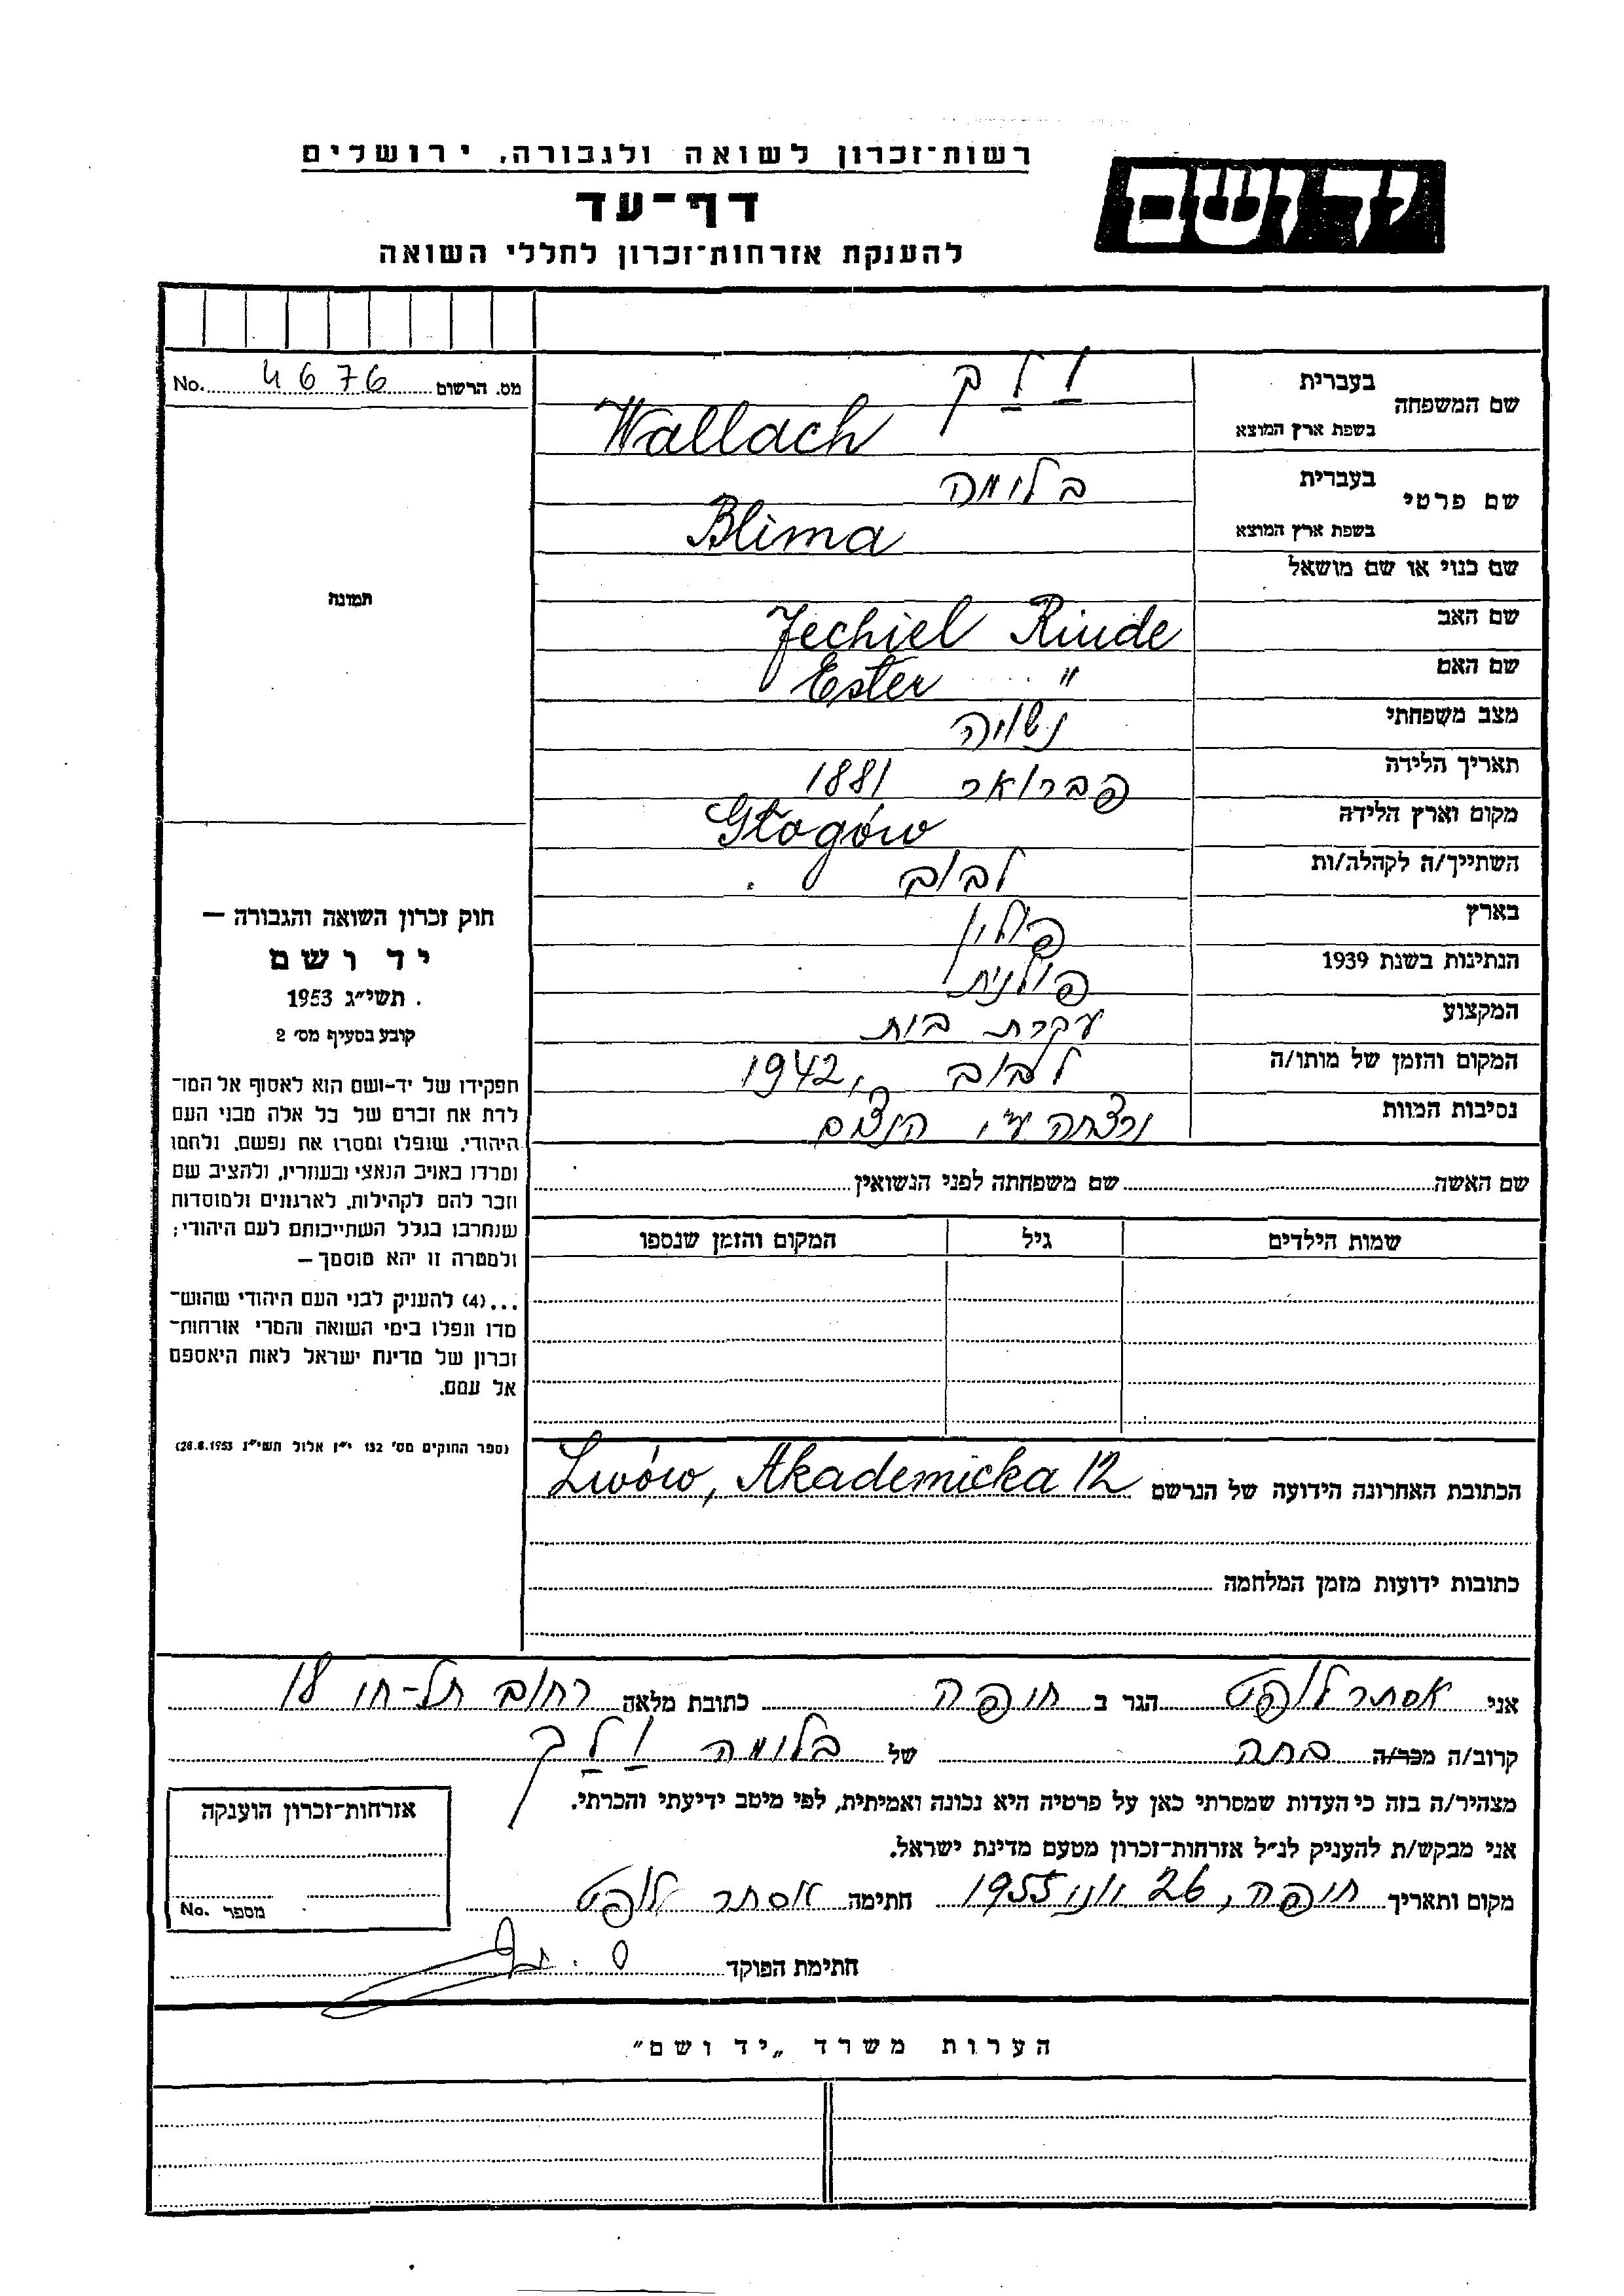 רשות־זכרון לשואה ולגבורה, ירושלים
יד ושם
דף־עד
להענקת אזרחות־זכרון לחללי השואה
שם המשפחה
בעברית וַלַך
בשפת ארץ המוצא Wallach
שם פרטי
בעברית בלימה
בשפת ארץ המוצא Blima
שם כנוי או שם מושאל
שם האב Jechiel Rinde
שם האם Ester "
מצב משפחתי נשואה
תאריך הלידה פברואר 1881
מקום וארץ הלידה Głogów
השתייך/ה לקהלה/ות לבוב
בארץ פולין
הנתינות בשנת 1939 פולנית
המקצוע עקרת בית
המקום והזמן של מותו/ה לבוב, 1942
נסיבות המוות נרצחה ע"י הנצים
שם האשה שם משפחתה לפני הנשואין
שמות הילדים גיל המקום והזמן שנספו
הכתובת האחרונה הידועה של הנרשם Lwów, Akademicka 12
כתובות ידועות מזמן המלחמה
מס. הרשום 4676 No.
תמונה
חוק זכרון השואה והגבורה —
יד ושם
תשי"ג 1953
קובע בסעיף מס' 2
תפקידו של יד-ושם הוא לאסוף אל המו־
לדת את זכרם של כל אלה מבני העם
היהודי, שנפלו ומסרו את נפשם, נלחמו
ומרדו באויב הנאצי ובעוזריו, ולהציב שם
וזכר להם לקהילות, לארגונים ולמוסדות
שנחרבו בגלל השתייכותם לעם היהודי;
ולמטרה זו יהא מוסמך —
...(4) להעניק לבני העם היהודי שהוש־
מדו ונפלו בימי השואה והמרי אזרחות־
זכרון של מדינת ישראל לאות היאספם
אל עמם.
(ספר החוקים מס' 132 י"ז אלול תשי"ג 28.8.1953)
אני אסתר ליפט הגר ב חיפה כתובת מלאה רחוב תל-חי 18
קרוב/ה מכר/ה בתה של בלימה וַלַך
מצהיר/ה בזה כי העדות שמסרתי כאן על פרטיה היא נכונה ואמיתית, לפי מיטב ידיעתי והכרתי.
אני מבקש/ת להעניק לנ"ל אזרחות־זכרון מטעם מדינת ישראל.
מקום ותאריך חיפה, 26 יוני 1955 חתימה אסתר ליפט
חתימת הפוקד
אזרחות־זכרון הוענקה
מספר No.
הערות משרד „יד ושם"